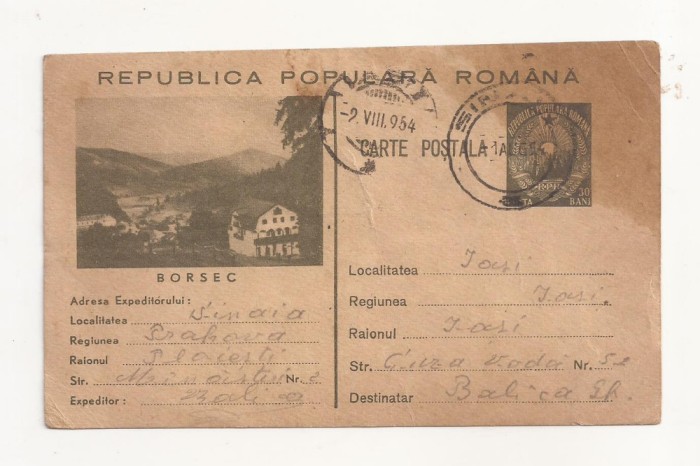 REPUBLICA POPULARĂ ROMÂNĂ
-2.VIII.954
CARTE POȘTALA
REPUBLICA POPULARA ROMANA
RPR
30
BANI
BORSEC
Adresa Expeditorului:
Localitatea Sinaia
Regiunea Prahova
Raionul
Str. Nr. 2
Expeditor: Balica
Localitatea Iași
Regiunea Iași.
Raionul Iași
Str. Cuza Vodă Nr. 52
Destinatar Balica Gh.